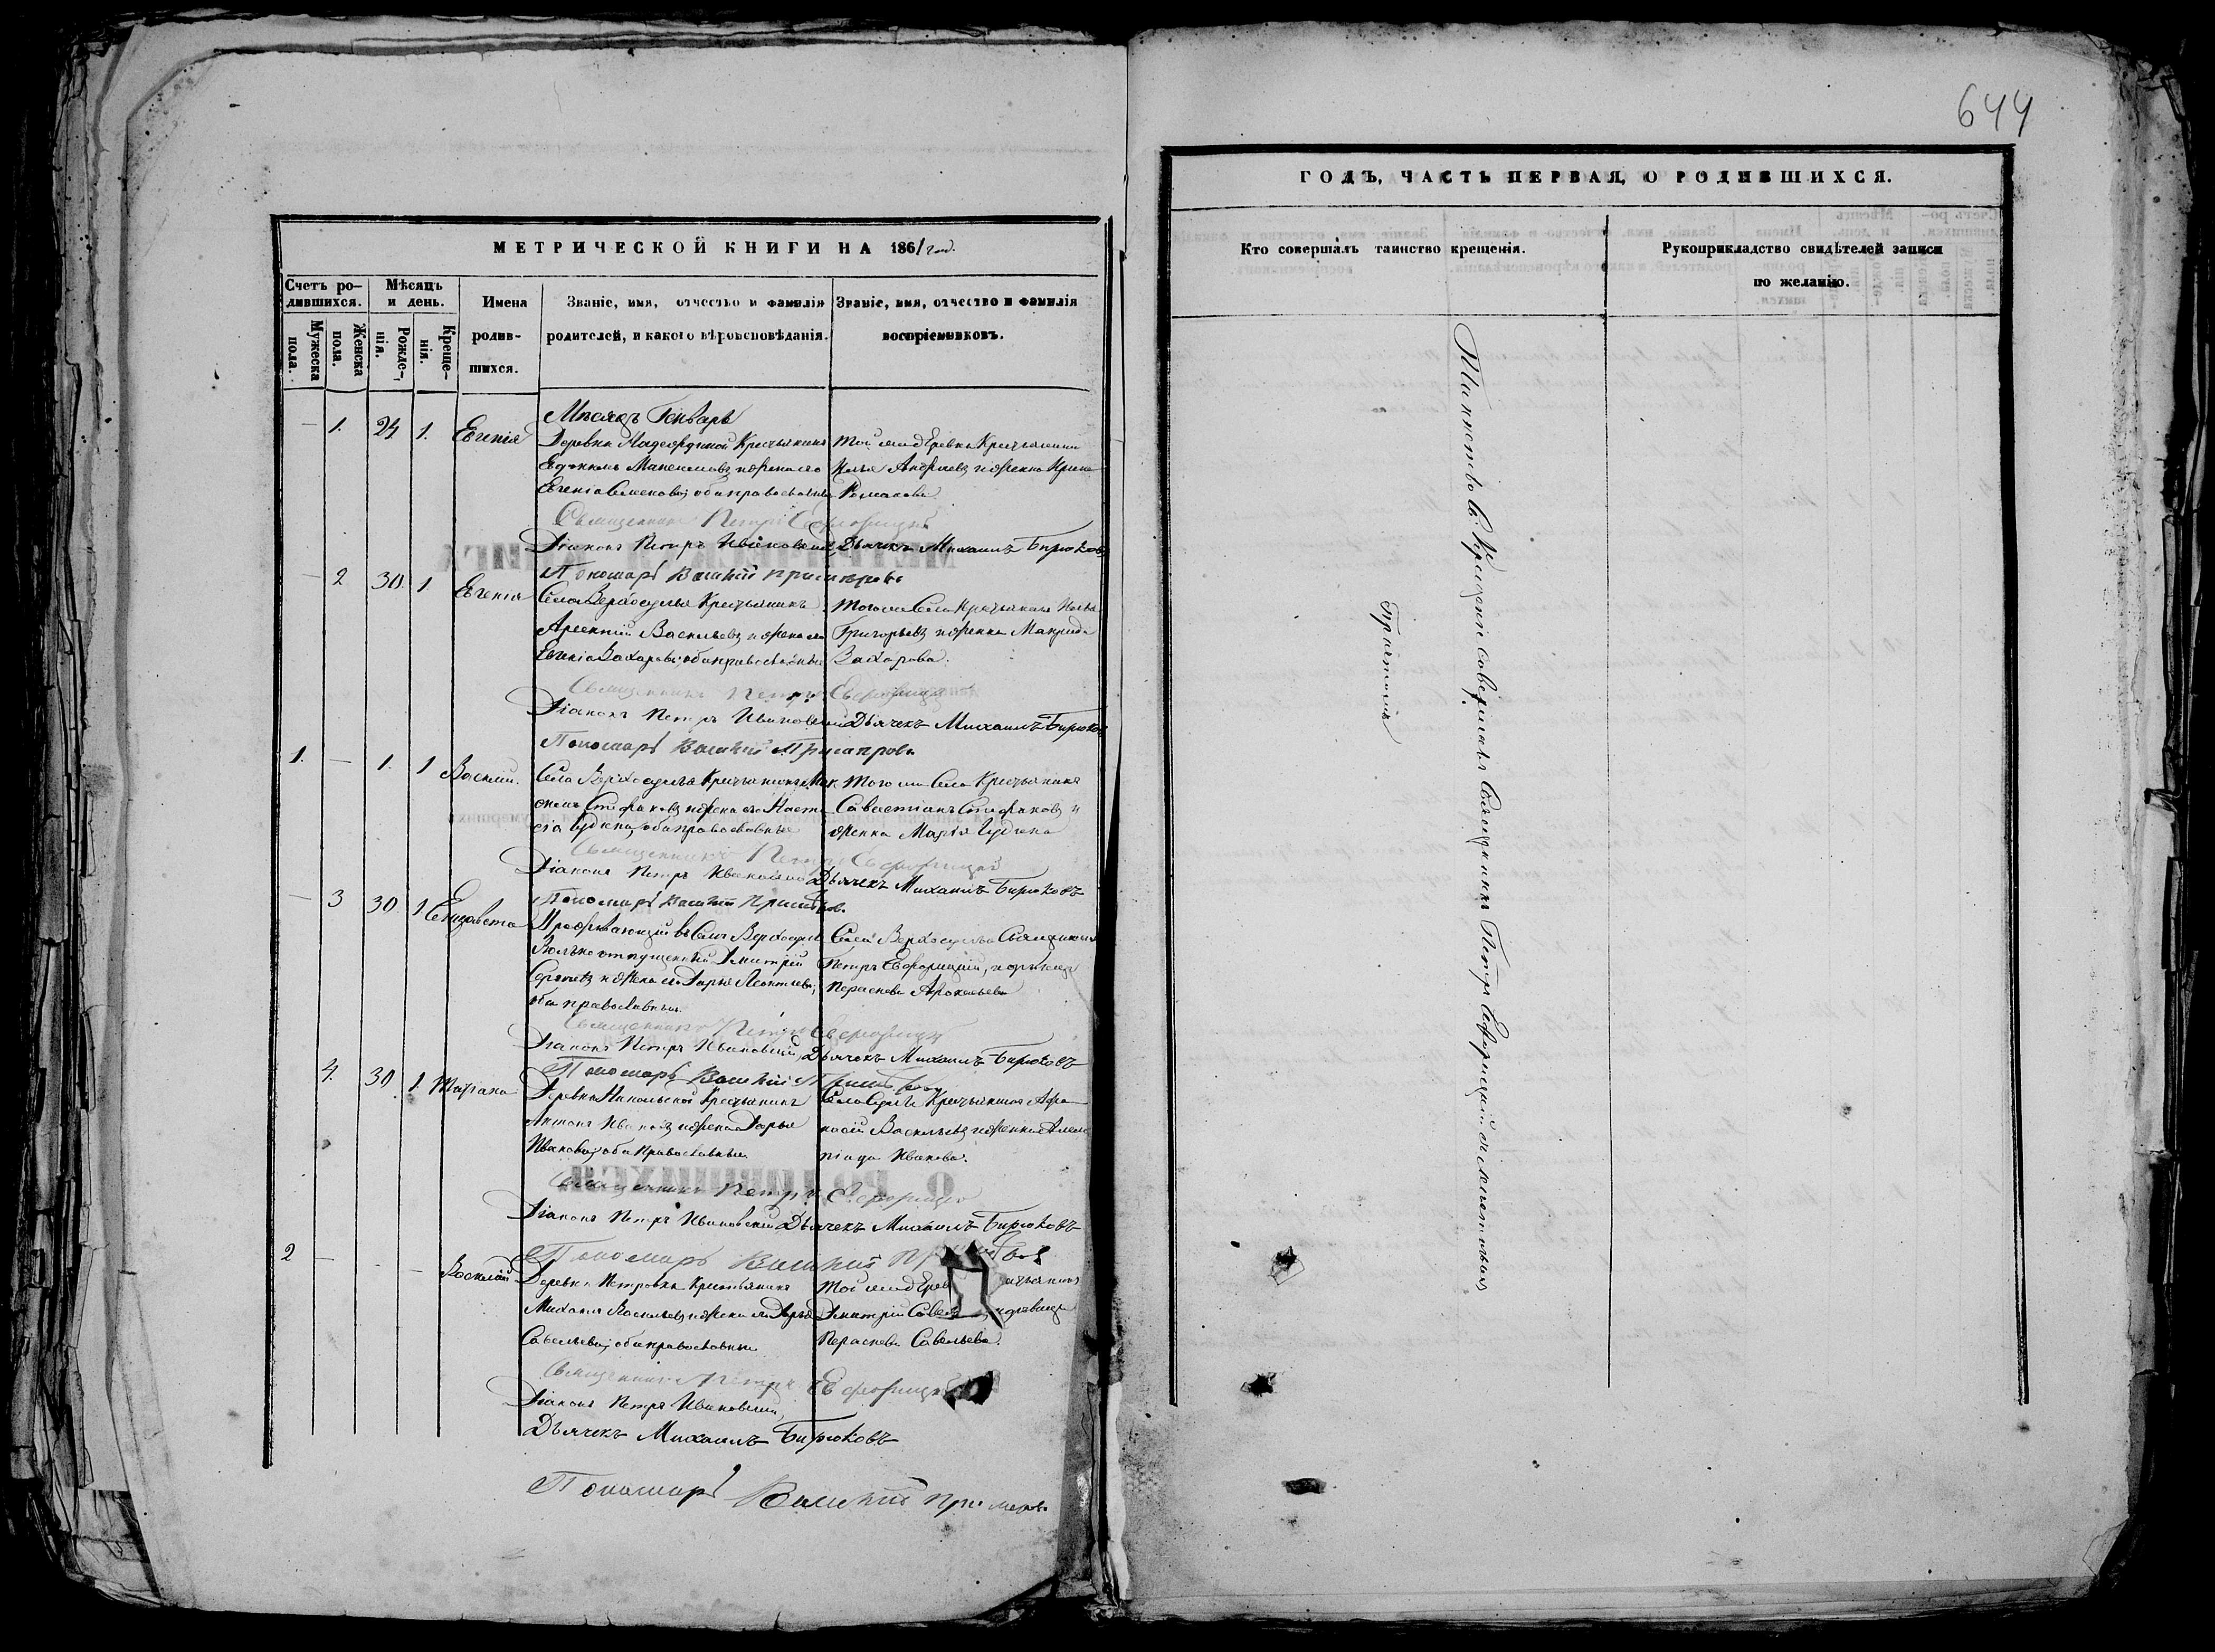 МЕТРИЧЕСКОЙ КНИГИ НА 1861 год.
Счетъ ро-
дившихся.
Мужеска
пола.
Женска
пола.
Мѣсяцъ
и день.
Рожде-
нія.
Креще-
нія.
Имена
родив-
шихся.
Званіе, имя, отчество и фамилія
родителей, и какого вѣроисповѣданія.
Званіе, имя, отчество и фамилія
воспріемниковъ.
Мѣсяцъ Генварь
— 1. 24 1. Евгенія
Деревни Крестьянинъ
Евдокимъ Максимовъ и жена его
Евгенія Семенова; оба православные
Той же деревни Крестьянинъ
Илья Андреевъ и жена Ирина
Романова
Священникъ Петръ Евфорицкій
Діаконъ Петръ Ивановскій Дьячекъ Михаилъ Бирюковъ
Пономарь Василій
— 2 30. 1 Евгенія
Села Верхосулья Крестьянинъ
Арсентій Васильевъ и жена его
Евгенія Захарова; оба православные
Того же Села Крестьянинъ Илья
Григорьевъ и женка Макрида
Захарова.
Священникъ Петръ Евфорицкій
Діаконъ Петръ Ивановскій Дьячекъ Михаилъ Бирюковъ
Пономарь Василій
1. — 1. 1 Василій.
Села Верхосулья Крестьянинъ Мак
симъ Стефановъ и жена его Наста
сія Іудина; оба православные
Того же Села Крестьянинъ
Савастіанъ Стефановъ и
женка Марія Іудина
Священникъ Петръ Евфорицкій
Діаконъ Петръ Ивановскій Дьячекъ Михаилъ Бирюковъ
Пономарь Василій
— 3 30. 1 Елизавета
Проживающій въ Селѣ Верхосульѣ
Вольноотпущенный Дмитрій
Сергеевъ и жена его Дарья Леонтьева;
оба православные.
Села Верхосулья Священникъ
Петръ Евфорицкій, и девица
Параскева
Священникъ Петръ Евфорицкій
Діаконъ Петръ Ивановскій Дьячекъ Михаилъ Бирюковъ
Пономарь Василій
4. 30. 1. Татіана
Деревни Никольской Крестьянинъ
Антонъ Ивановъ и жена его Дарья
Иванова; оба православные
Села Крестьянинъ Афа
насій Васильевъ и женка
Иванова.
Священникъ Петръ Евфорицкій
Діаконъ Петръ Ивановскій Дьячекъ Михаилъ Бирюковъ
Пономарь Василій
2 — — — Василій
Деревни Петровки Крестьянинъ
Михаилъ Васильевъ и жена его Дарья
Савельева; оба православные
Той же дерев
Дмитрій и девица
Параскева Савельева.
Священникъ Петръ Евфорицкій
Діаконъ Петръ Ивановскій
Дьячекъ Михаилъ Бирюковъ
Пономарь Василій
644
ГОДЪ, ЧАСТЬ ПЕРВАЯ, О РОДИВШИХСЯ.
Кто совершалъ таинство крещенія.
Рукоприкладство свидѣтелей записи
по желанію.
Таинство Св. Крещенія совершалъ Священникъ Петръ Евфорицкій съ
Причтомъ